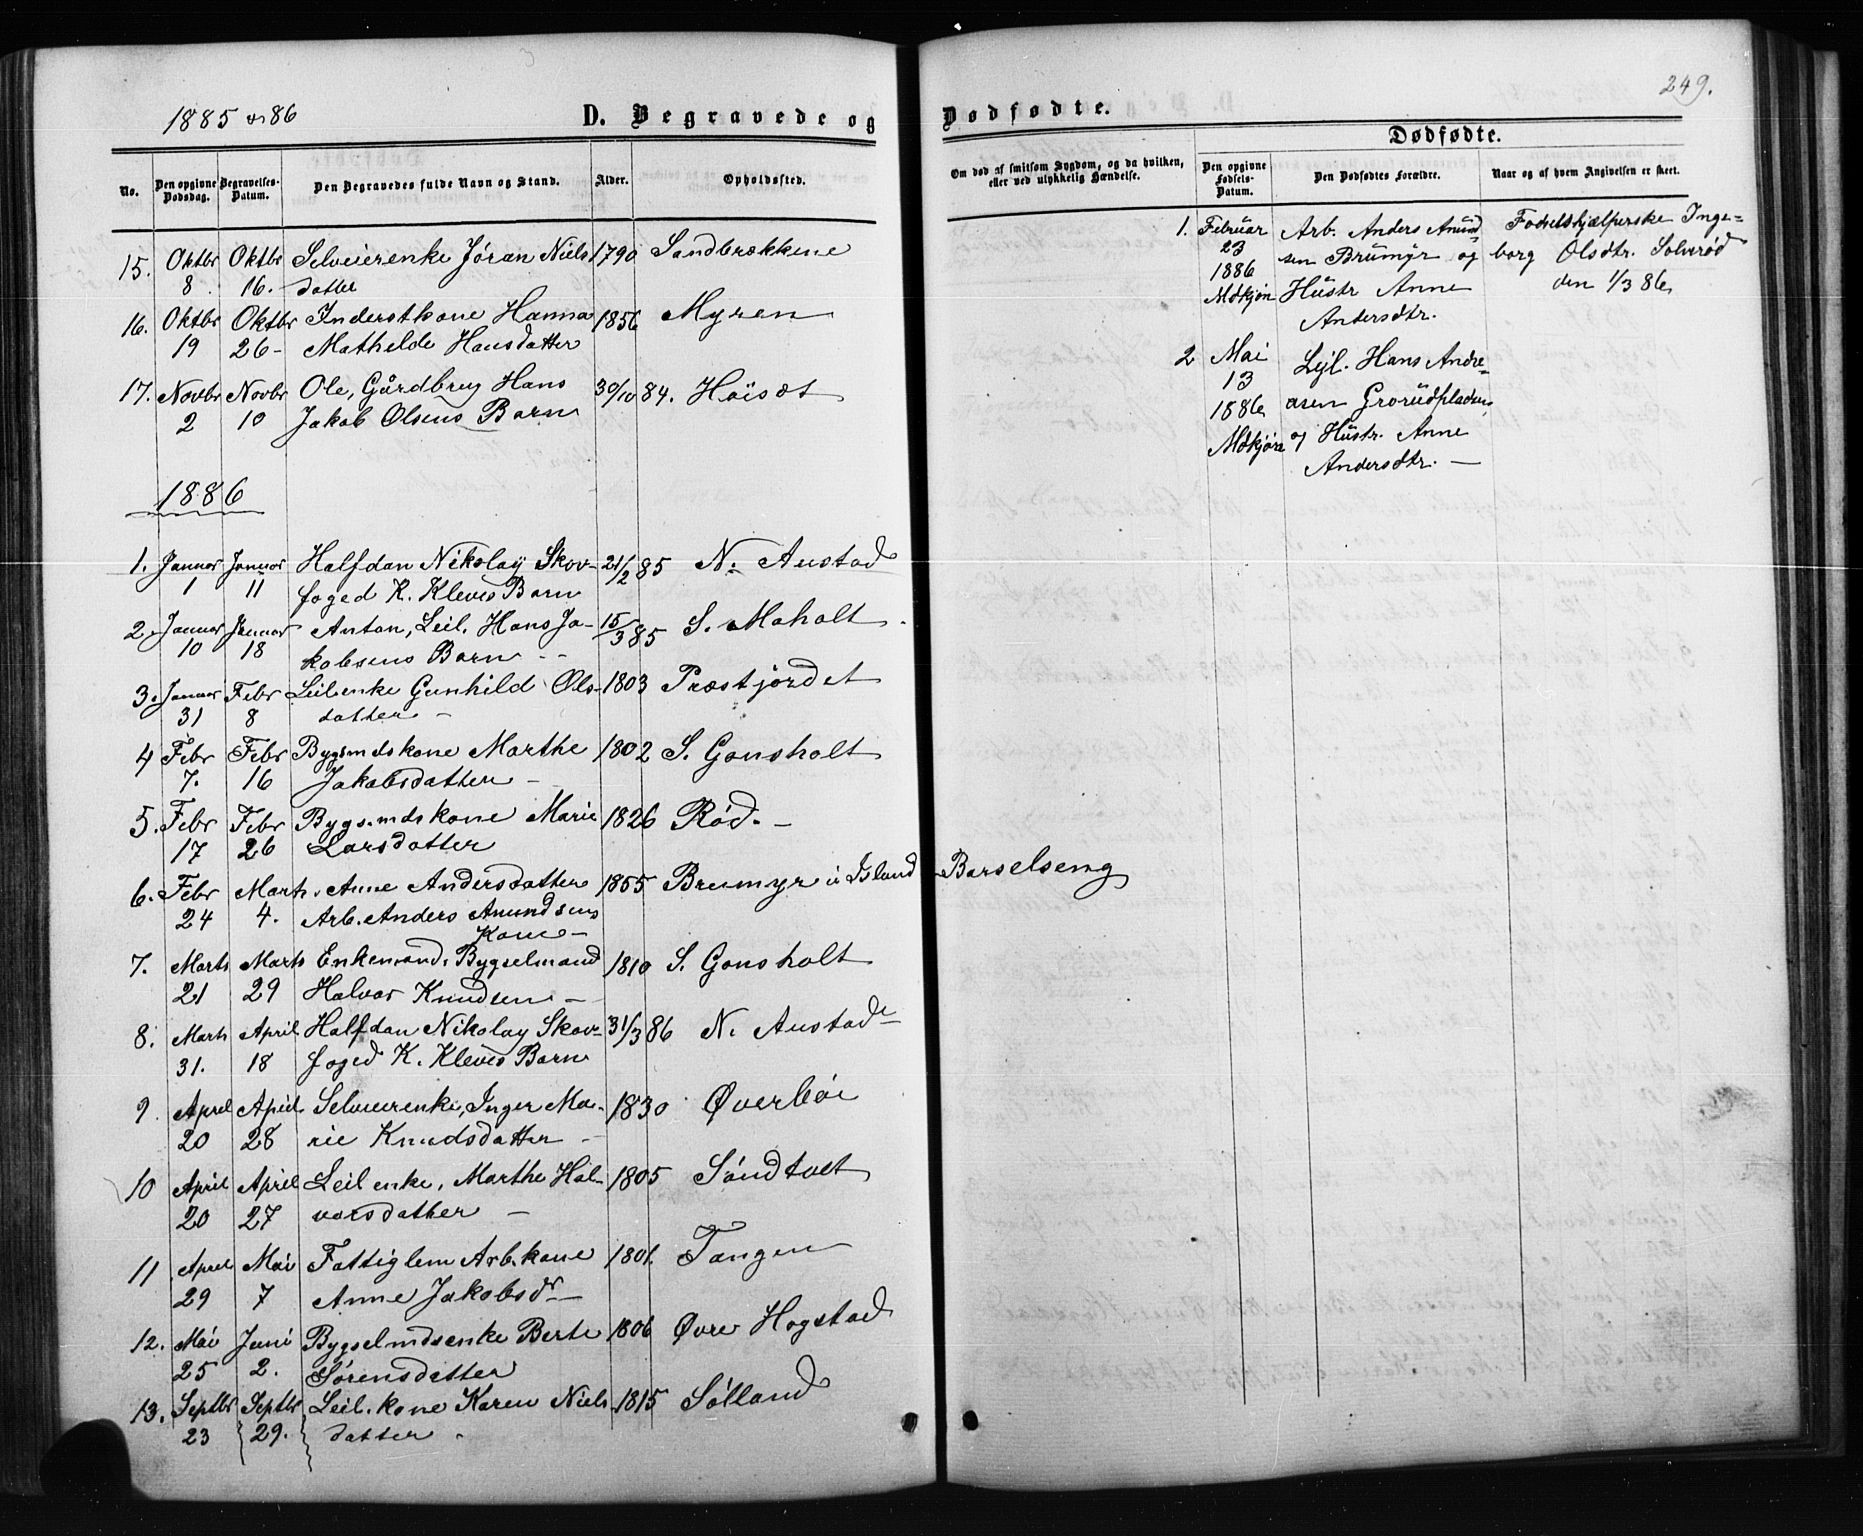 1885 og 86
D. Begravede og
No. Den opgivne Dødsdag. Begravelses-Datum. Den Begravedes fulde Navn og Stand. Alder. Opholdssted.
15. Oktbr Oktbr Selveierenke Jøran Niels 1790 Sandbrækkene
8 16. datter
16. Oktbr Oktbr Inderstkone Hanna 1856 Myren
19 26 Mathilde Hansdatter
17. Novbr Novbr Ole, Gårdbrug Hans 30/10 84. Høisæt
2 10 Jakob Olsens Barn
1886
1. Januar Januar Halfdan Nikolay Skov- 21/2 85 N. Austad
1 11 foged K. Kleves Barn
2. Januar Januar Anton, Leil. Hans Ja- 15/3 85 S. Moholt
10 18 kobsens Barn
3. Januar Febr Leilenke Gunhild Ols- 1803 Præstjordet
31 8 datter
4 Febr Febr Bygsmdskone Marthe 1802 S. Gonsholt
7. 16 Jakobsdatter
5. Febr Febr Bygs.mdskone Marie 1826 Rød.
17 26 Larsdatter
6. Febr Marts Anne Andersdatter 1855 Brumyr i Island Barselseng
24 4. Arb. Anders Anundsens
Kone
7. Marts Marts Enkemand, Bygselmand 1810 S. Gonsholt
21 29 Halvor Knudsen
8. Marts April Halfdan Nikolay Skov- 31/3 86 N. Austad
31. 18 foged K. Kleves Barn
9. April April Selveierenke, Inger Ma- 1830 Øverbøi
20 28 rie Knudsdatter
10 April April Leilenke, Marthe Hal- 1805 Søndtvet
20 27 vorsdatter
11 April Mai Fattiglem Arb.kone 1801. Tangen
29 7 Anne Jakobsdr
12. Mai Juni Bygselmdsenke Berte 1806 Øvre Hogstad
25 2. Sørensdatter
13. Septbr Septbr Leil. kone Karen Niels 1815 Sølland
23 29. datter
249.
Dødfødte.
Dødfødte.
Om død af smitsom Sygdom, og da hvilken, eller ved ulykkelig Hændelse. Den opgivne Fødsels-Datum. Den Dødfødtes Forældre. Naar og af hvem Angivelsen er skeet.
1. Februar Arb. Anders Anund Fødselshjælperske Inge-
23 sen Brumyr og borg Olsdtr. Solverød
1886 Hustr Anne den 1/3 86
Mdkjøn Andersdtr.
2 Mai Lejl. Hans Andre-
13 asen Grorudpladsen
1886 og Hustr. Anne
Mdkjøn Andersdtr.